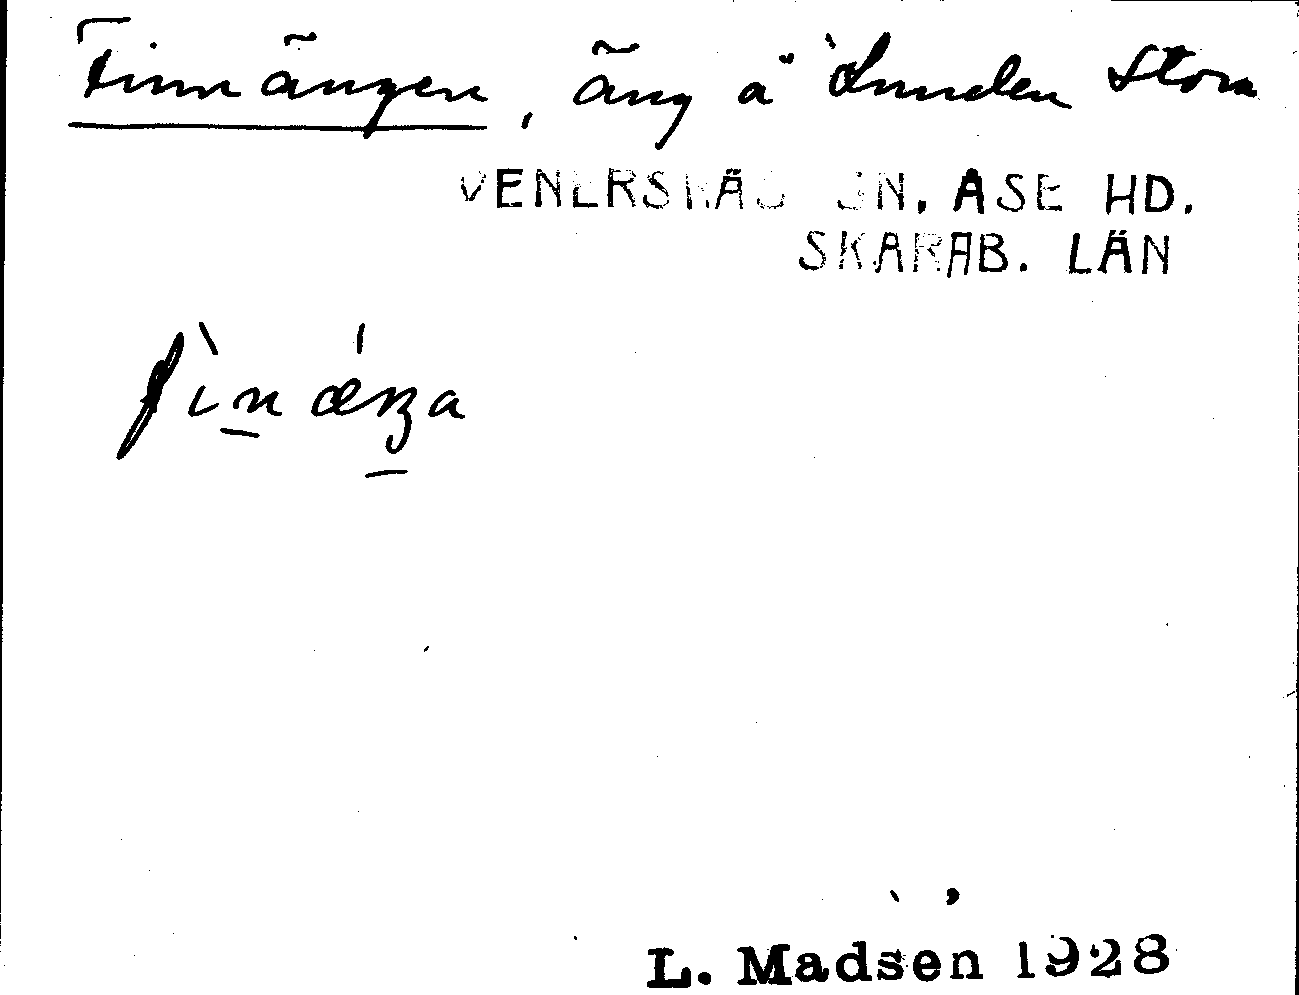 Finnängen, äng å Lunden Stora
VENERSNÄS SN. ÅSE HD.
SKARAB. LÄN
fìnǽŋa
L. Madsen 1928